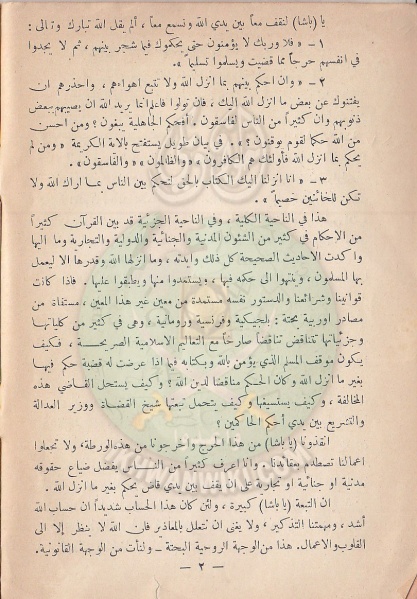 يا (باشا) لنقف معاً بين يدي الله ونسمع معاً ، ألم يقل الله تبارك وتعالى :
١ – « فلا وربك لا يؤمنون حتى يحكموك فيما شجر بينهم ، ثم لا يجدوا
في انفسهم حرجاً مما قضيت ويسلموا تسليما » .
٢ – « وان احكم بينهم بما أنزل الله ولا تتبع اهواءهم ، واحذرهم ان
يفتنوك عن بعض ما انزل الله اليك ، فان تولوا فاعلم انما يريد الله ان يصيبهم ببعض
ذنوبهم وان كثيراً من الناس لفاسقون . أفحكم الجاهلية يبغون ؟ ومن احسن
من الله حكما لقوم يوقنون ؟ » . في بيان طويل يستفتح بالآية الكريمة « ومن لم
يحكم بما انزل الله فأولئك هم الكافرون » « والظالمون » « والفاسقون » .
٣ – « انا انزلنا اليك الكتاب بالحق لتحكم بين الناس بما اراك الله ولا
تكن للخائنين خصيماً » .
هذا في الناحية الكلية ، وفي الناحية الجزئية قد بين القرآن كثيراً
من الاحكام في كثير من الشئون المدنية والجنائية والدولية والتجارية وما اليها
وأكدت الاحاديث الصحيحة كل ذلك وأيدته ، وما انزلها الله وقدرها الا ليعمل
بها المسلمون ، وينتهوا الى حكمه فيها ، ويستمدوا منها ويطبقوا عليها . فاذا كانت
قوانيننا وشرائعنا والدستور نفسه مستمدة من معين غير هذا المعين ، مستقاة من
مصادر اوربية بحتة : بلجيكية وفرنسية ورومانية ، وهى في كثير من كلياتها
وجزئياتها تتناقض تناقضاً صارخاً مع التعاليم الاسلامية الصريحة ، فكيف
يكون موقف المسلم الذي يؤمن بالله وبكتابه فيما اذا عرضت له قضية حكم فيها
بغير ما انزل الله وكان الحكم مناقضا لدين الله ؟ وكيف يستحل القاضي هذه
المخالفة ، وكيف يستسيغها وكيف يتحمل تبعتها شيخ القضاة ووزير العدالة
والتشريع بين يدي أحكم الحاكمين ؟
انقذونا (يا باشا) من هذا الحرج واخرجونا من هذه الورطة ، ولا تجعلوا
اعمالنا تصطدم بعقائدنا . وانا اعرف كثيراً من الناس يفضل ضياع حقوقه
مدنية او جنائية او تجارية على ان يقف بين يدي قاض يحكم بغير ما انزل الله .
ان التبعة (يا باشا) كبيرة ، ولئن كان هذا الحساب شديداً ان حساب الله
أشد ، ومهمتنا التذكير ، ولا يغني ان نتعلل بالمعاذير فان الله لا ينظر إلا الى
القلوب والاعمال . هذا من الوجهة الروحية البحتة – ولنأت من الوجهة القانونية .
– ٢ –